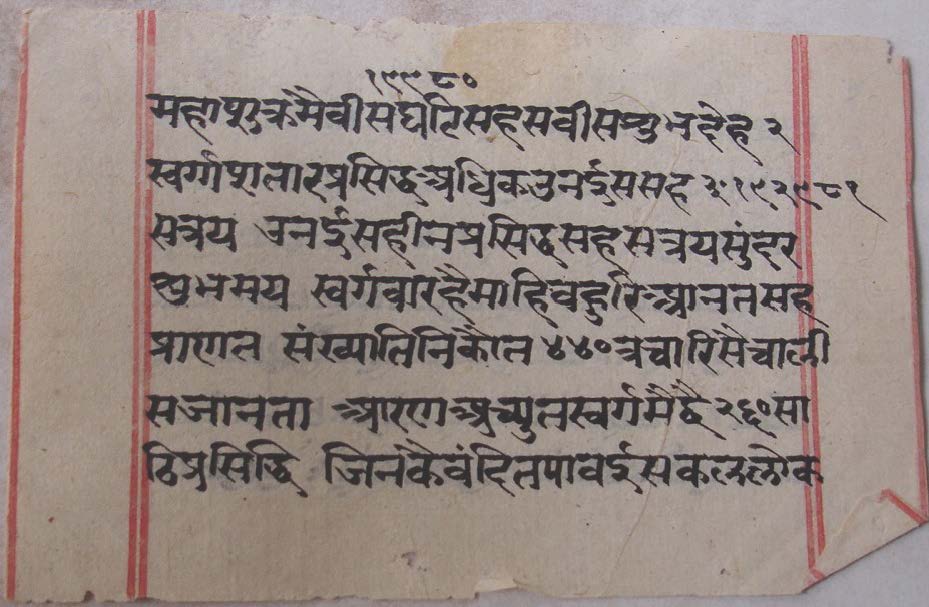 १९९८०
महापुक्रमैवीसघटिसहसवीसशुभहेह २
स्वर्गापातारप्रसिद्धअधिकउनईससह
सत्रय उनईसहीनप्रसिद्धसहसत्रयसुंदर
शुभमय स्वर्गवारहैमाहिवहुरिआनतसह
प्राणत संख्यातिनिकीत ४४० त्रचारिसैचाली
सजानता आरणअच्युतस्वर्गमैछै २६० सा
ठिप्रसिद्धि जिनकैवंदितपावईसकललोक